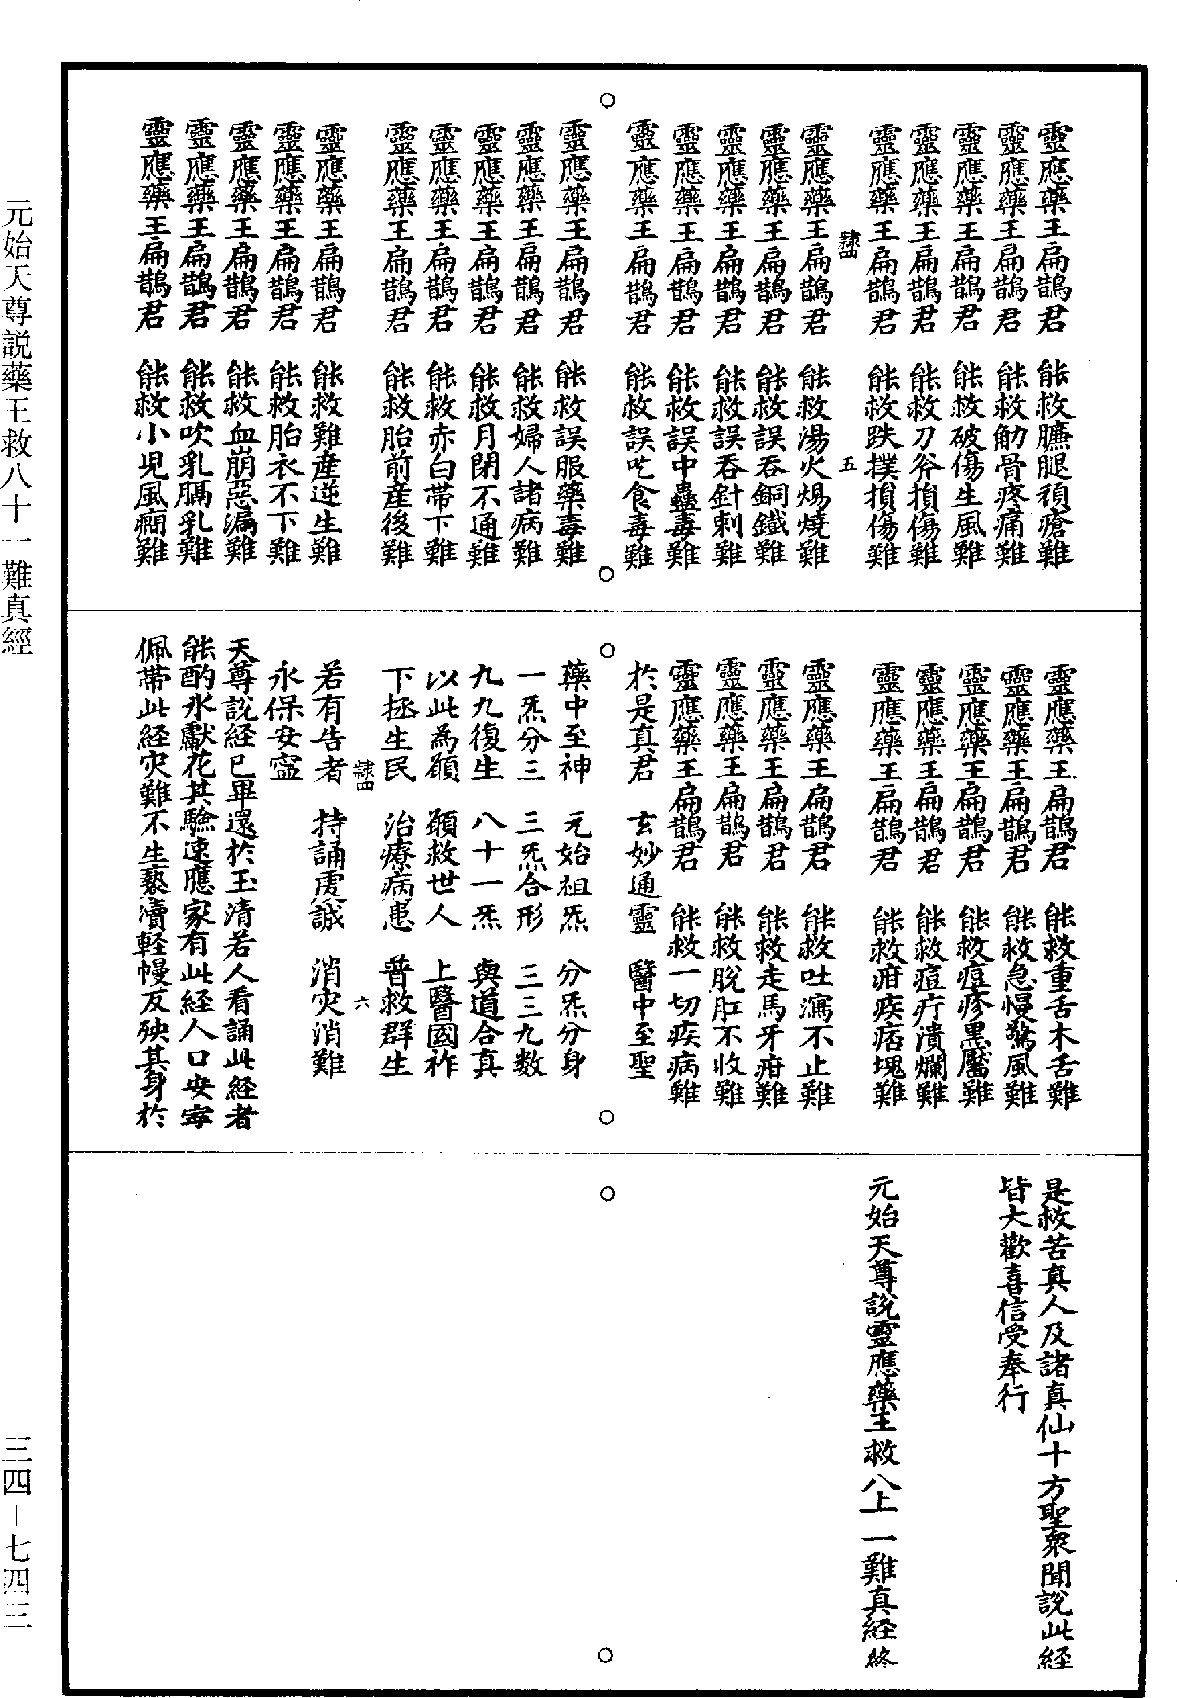 靈應藥王扁鵲君　能救臁腿頑瘡難
靈應藥王扁鵲君　能救觔骨疼痛難
靈應藥王扁鵲君　能救破傷生風難
靈應藥王扁鵲君　能救刀斧損傷難
靈應藥王扁鵲君　能救跌撲損傷難
隸四　五
靈應藥王扁鵲君　能救湯火煬燒難
靈應藥王扁鵲君　能救誤吞銅鐵難
靈應藥王扁鵲君　能救誤吞針刺難
靈應藥王扁鵲君　能救誤中蠱毒難
靈應藥王扁鵲君　能救誤吃食毒難
靈應藥王扁鵲君　能救誤服藥毒難
靈應藥王扁鵲君　能救婦人諸病難
靈應藥王扁鵲君　能救月閉不通難
靈應藥王扁鵲君　能救赤白帶下難
靈應藥王扁鵲君　能救胎前產後難
靈應藥王扁鵲君　能救難產逆生難
靈應藥王扁鵲君　能救胎衣不下難
靈應藥王扁鵲君　能救血崩惡漏難
靈應藥王扁鵲君　能救吹乳膈乳難
靈應藥王扁鵲君　能救小兒風癇難
靈應藥王扁鵲君　能救重舌木舌難
靈應藥王扁鵲君　能救急慢驚風難
靈應藥王扁鵲君　能救痘疹黑靨難
靈應藥王扁鵲君　能救痘疔潰爛難
靈應藥王扁鵲君　能救疳疾痞塊難
靈應藥王扁鵲君　能救吐瀉不止難
靈應藥王扁鵲君　能救走馬牙疳難
靈應藥王扁鵲君　能救脫肛不收難
靈應藥王扁鵲君　能救一切疾病難
於是真君　玄妙通靈　醫中至聖
藥中至神　元始祖炁　分炁分身
一炁分三　三炁合形　三三九數
九九復生　八十一炁　與道合真
以此為願　願救世人　上醫國祚
下拯生民　治療病患　普救群生
隸四　六
若有告者　持誦虔誠　消灾消難
永保安寍
天尊說經已畢還於玉清若人看誦此經者
能酌水獻花其驗速應家有此經人口安寧
佩帶此經灾難不生褻瀆輕慢反殃其身於
是救苦真人及諸真仙十方聖衆聞說此經
皆大歡喜信受奉行
元始天尊說靈應藥王救八十一難真經終
元始天尊説藥王救八十一難真經
三四－七四三